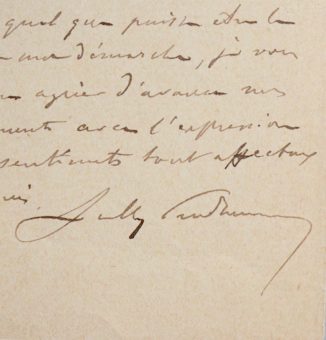 quel que puisse être le
mon démarche, je vous
agréer d'avance mes
ments avec l'expression
sentiments tout affectueux
Sully Prudhomme